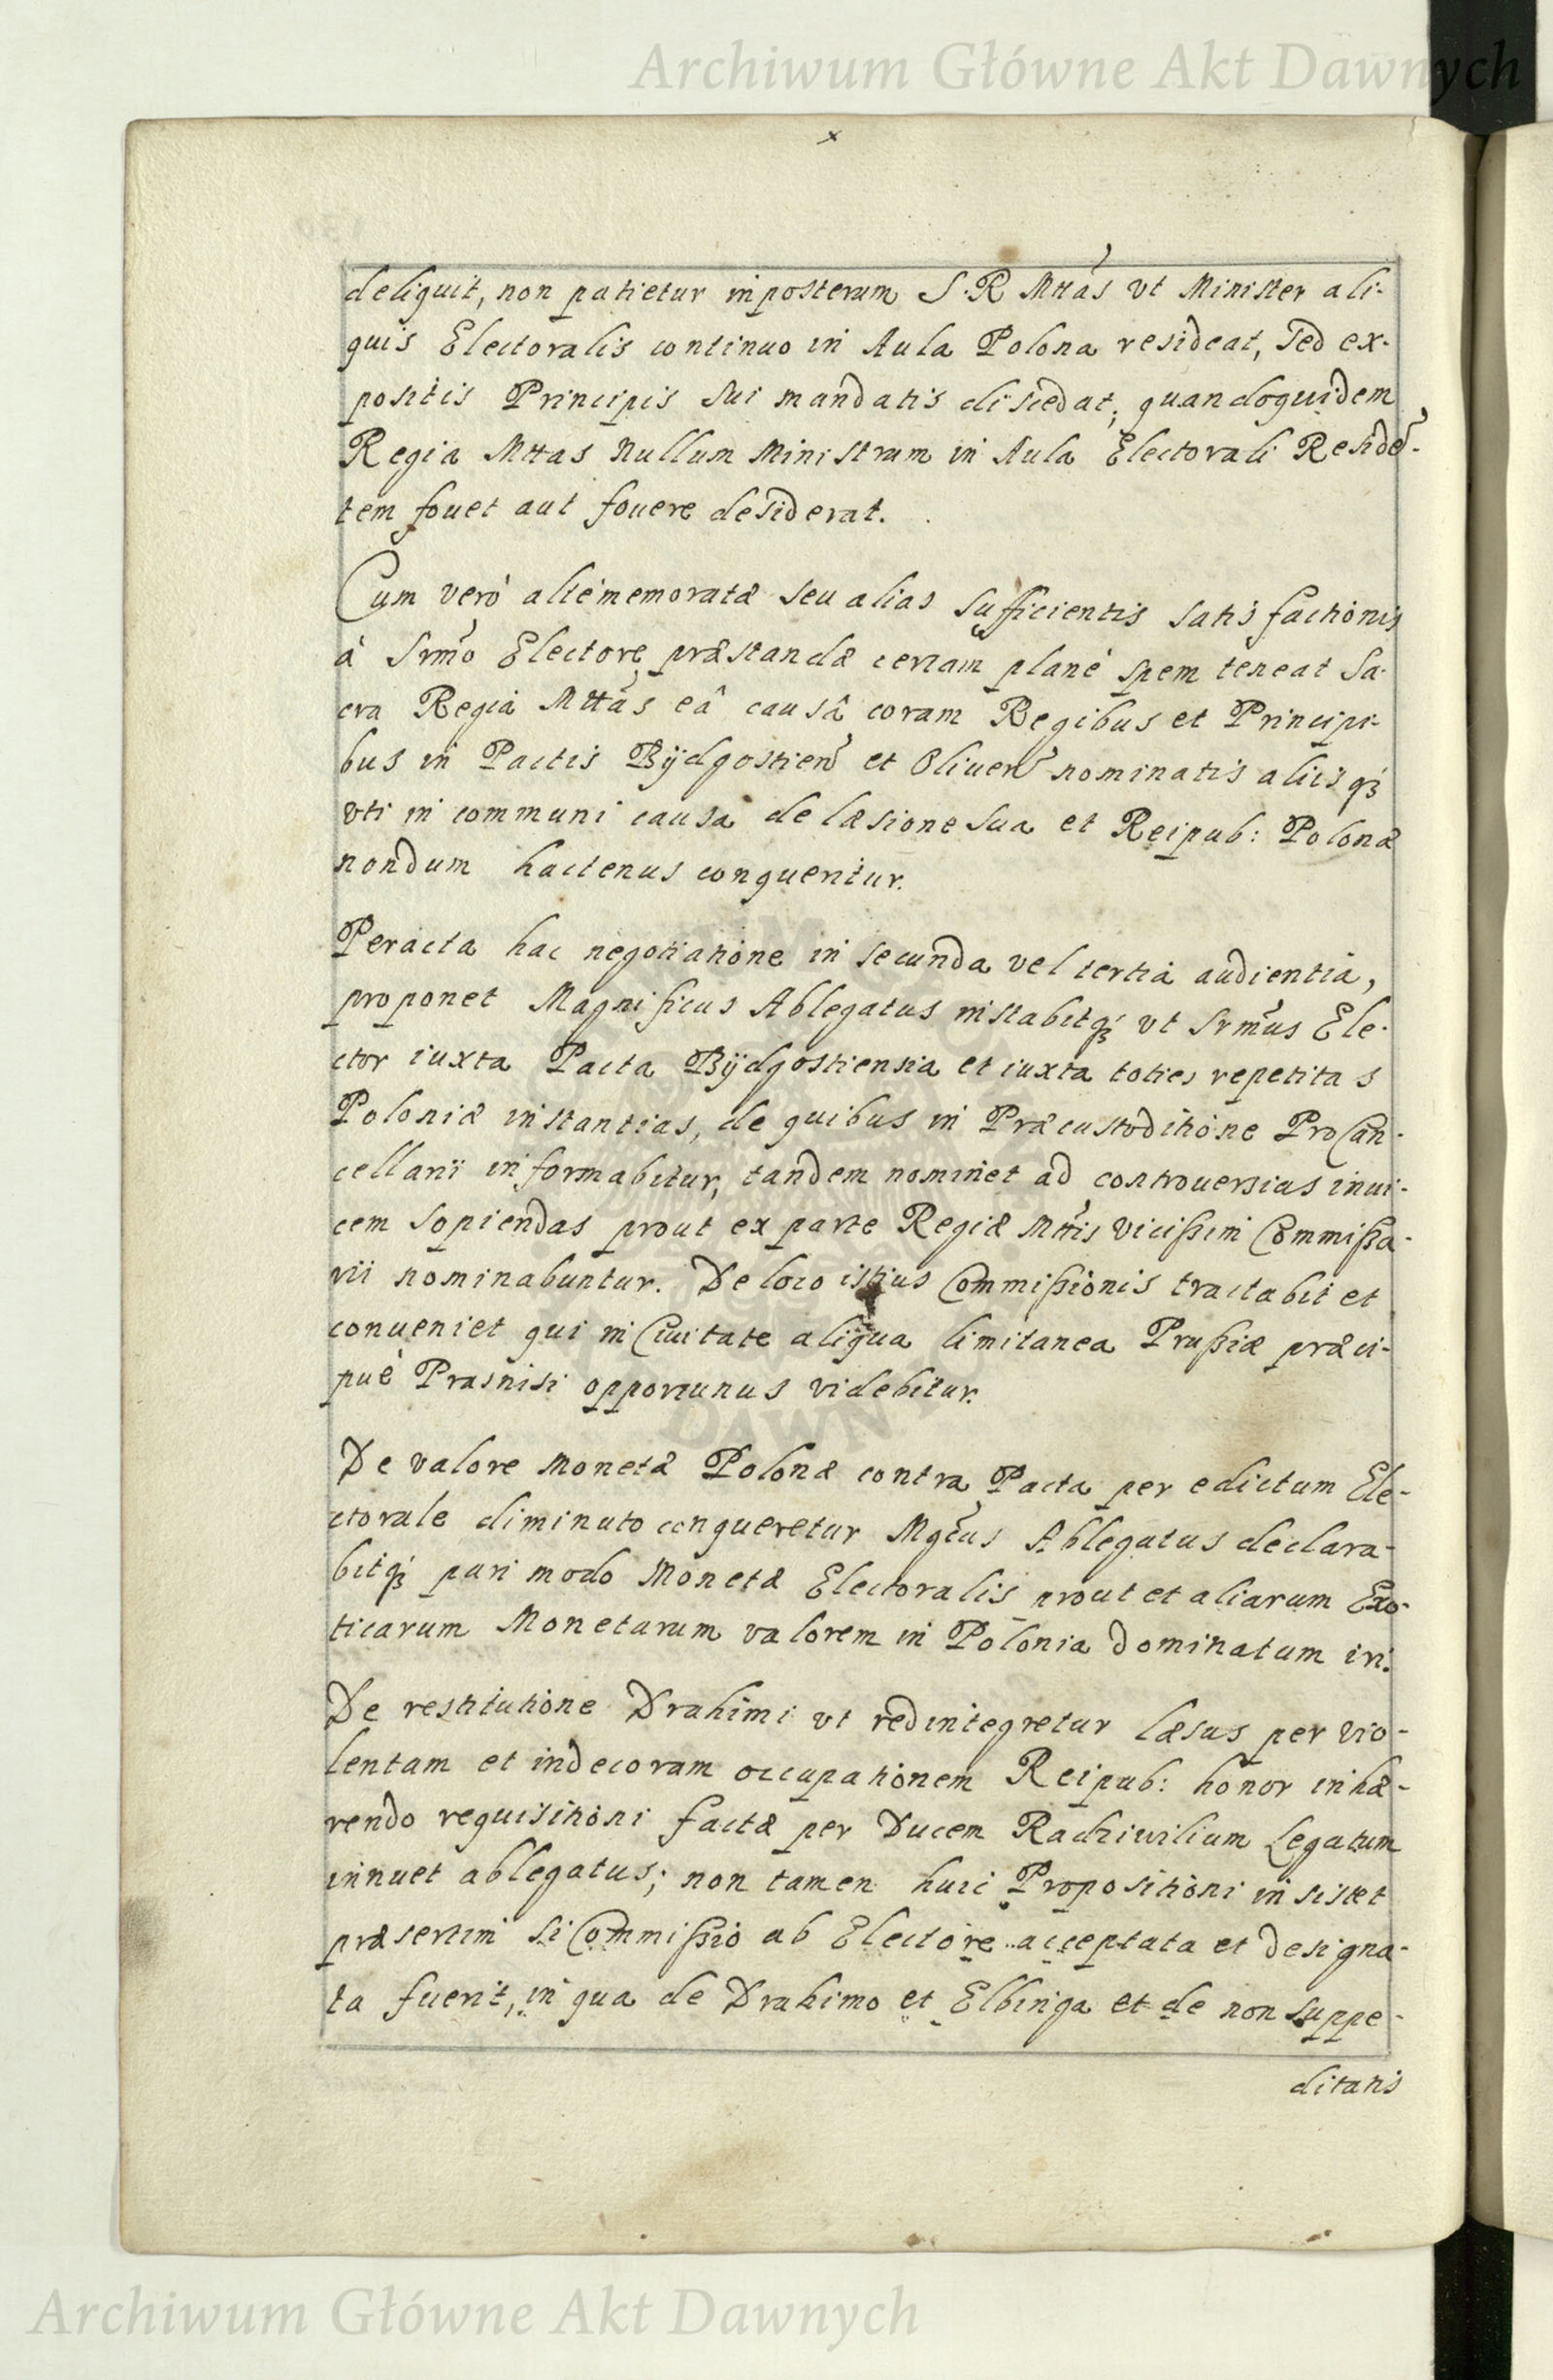 Archiwum Główne Akt Dawnych
deliquit, non patietur inposterum S. R Mttas vt Minister ali-
quis Electoralis continuo in Aula Polona resideat, sed ex-
positis Principis sui mandatis discedat; quandoquidem
Regia Mttas Nullum Ministrum in Aula Electorali Residẽ-
tem fouet aut fouere desiderat.
Cum verò altè memoratæ seu alias sufficientis satisfactionis
à Srmo Electore præstandæ certam planè spem teneat Sa-
cra Regia Mttas eâ causâ coram Regibus et Principi-
bus in Pactis Bÿdgostien et Oliuen nominatis aliisqȝ
vti in communi causa de læsione sua et Reipub: Polonæ
nondum hactenus conqueritur.
Peracta hac negotiatione in secunda vel tertia audientia,
proponet Magnificus Ablegatus instabitqȝ vt Srmus Ele-
ctor iuxta Pacta Bÿdgostiensia et iuxta toties repetitas
Poloniæ instantias, de quibus in Præcustoditione ProCan-
cellarii informabitur, tandem nominet ad controuersias inui-
cem sopiendas prout ex parte Regiæ Mttis vicißim Commißa-
rii nominabuntur. De loco istius Commißionis tractabit et
conueniet qui in Ciuitate aliqua limitanea Prußiæ præci-
puè Prasnisi opportunus videbitur.
De valore Monetæ Polonæ contra Pacta per edictum Ele-
ctorale diminuto conqueretur Mgcus Ablegatus declara-
bitqȝ pari modo Monetæ Electoralis prout et aliarum Exo-
ticarum Monetarum valorem in Polonia dominatum iri.
De restitutione Drahimi vt redintegretur læsus per vio-
lentam et indecoram occupationem Reipub: honor inhæ-
rendo requisitioni factæ per Ducem Radziwilium Legatum
innuet ablegatus; non tamen huic Propositioni insistet
præsertim si Commißio ab Electore acceptata et designa-
ta fuerit, in qua de Drahimo et Elbinga et de non suppe-
ditatis
Archiwum Główne Akt Dawnych